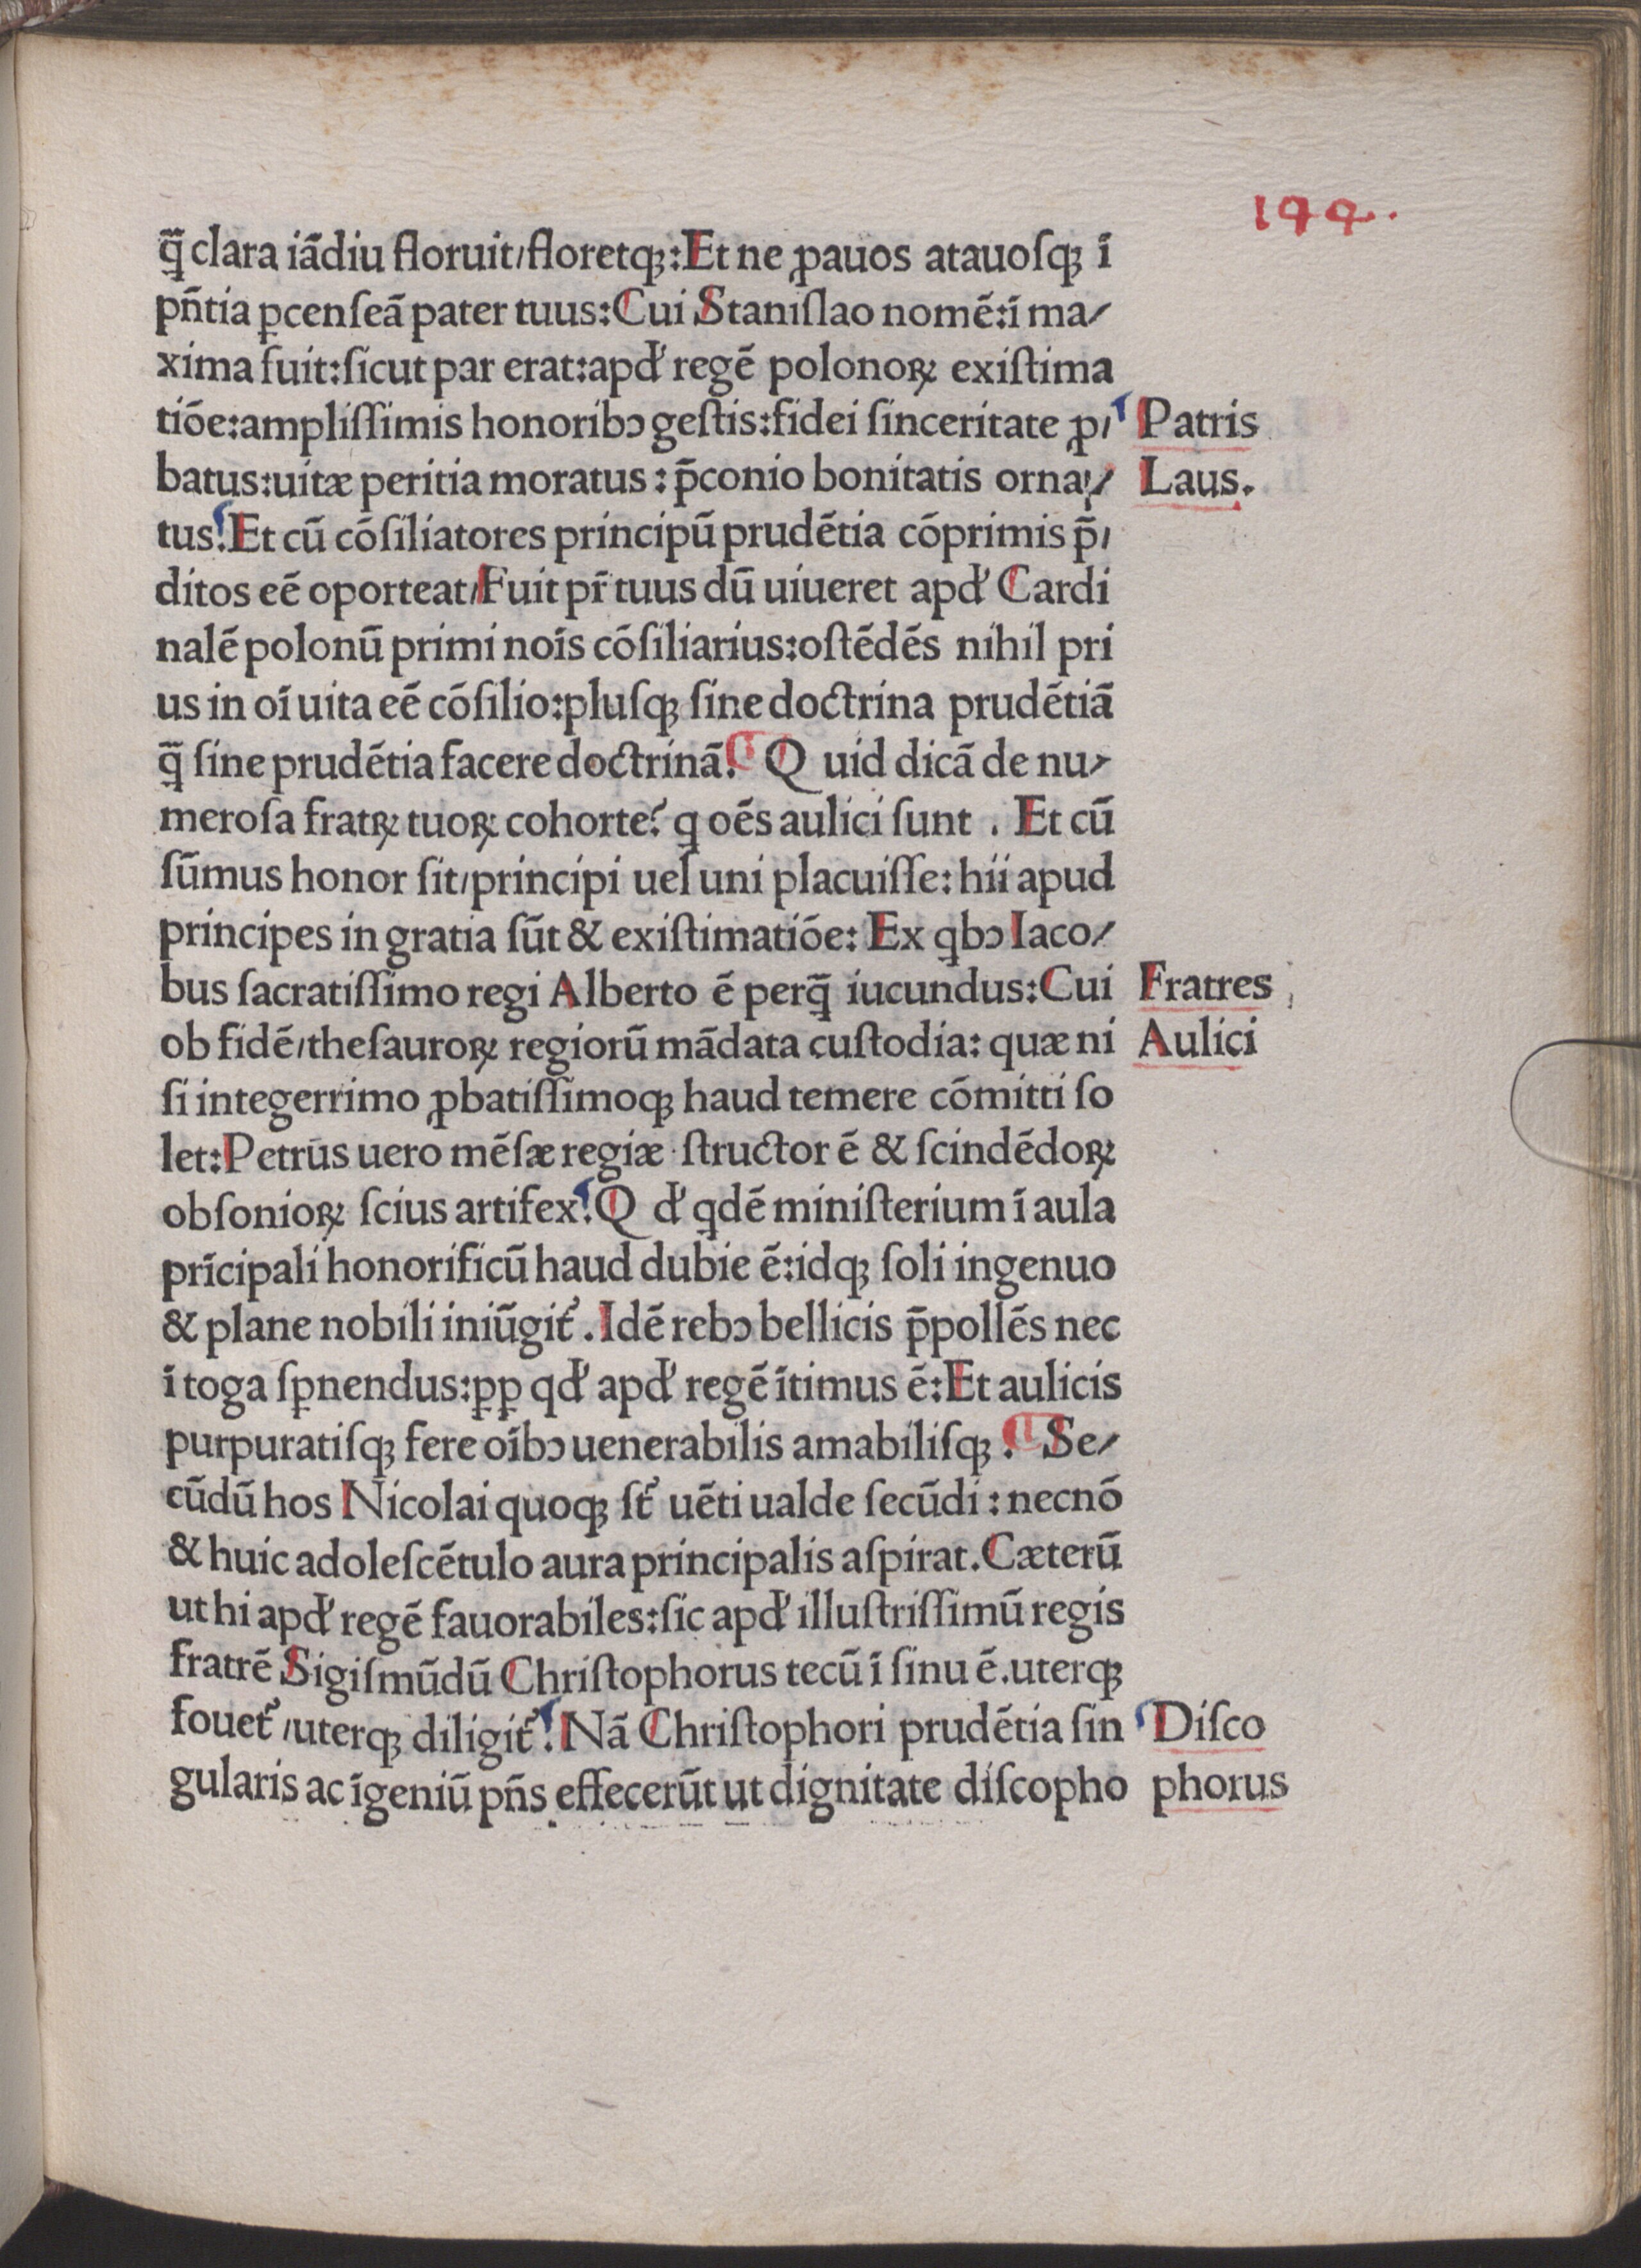 144.
q̃ clara iãdiu floruit/floretqꝫ:Et ne ꝓauos atauoſqꝫ ĩ
pñtia ꝑcenſeã pater tuus:Cui Staniſlao nomẽ:ĩ ma/
xima fuit:ſicut par erat:apd' regẽ polonoꝝ exiſtima
tiõe:ampliſſimis honoribꝰ geſtis:fidei ſinceritate ꝓ/
Patris
batus:uitæ peritia moratus: p̃conio bonitatis orna/
Laus.
tus.Et cũ cõſiliatores principũ prudẽtia cõprimis p̃/
ditos eẽ oporteat/Fuit pr̃ tuus dũ uiueret apd' Cardi
nalẽ polonũ primi noĩs cõſiliarius:oſtẽdẽs nihil pri
us in oĩ uita eẽ cõſilio:pluſqꝫ ſine doctrina prudẽtiã
q̃ ſine prudẽtia facere doctrinã. Q uid dicã de nu/
meroſa fratꝝ tuoꝝ cohorte? q oẽs aulici ſunt . Et cũ
ſũmus honor ſit/principi uel uni placuiſſe: hii apud
principes in gratia ſũt & exiſtimatiõe: Ex qbꝰ Iaco/
bus ſacratiſſimo regi Alberto ẽ perq̃ iucundus:Cui
Fratres
ob fidẽ/theſauroꝝ regiorũ mãdata cuſtodia: quæ ni
Aulici
ſi integerrimo ꝓbatiſſimoqꝫ haud temere cõmitti ſo
let:Petrus uero mẽſæ regiæ ſtructor ẽ & ſcindẽdoꝝ
obſonioꝝ ſcius artifex.Q d' qdẽ miniſterium ĩ aula
prĩcipali honorificũ haud dubie ẽ:idqꝫ ſoli ingenuo
& plane nobili iniũgit᷑. Idẽ rebꝰ bellicis p̃pollẽs nec
ĩ toga ſꝑnendus:ꝑꝑ qd' apd' regẽ ĩtimus ẽ:Et aulicis
purpuratiſqꝫ fere oĩbꝰ uenerabilis amabiliſqꝫ. Se/
cũdũ hos Nicolai quoqꝫ ſt᷑ uẽti ualde ſecũdi: necnõ
& huic adoleſcẽtulo aura principalis aſpirat.Cæterũ
ut hi apd' regẽ fauorabiles:ſic apd' illuſtriſſimũ regis
fratrẽ Sigiſmũdũ Chriſtophorus tecũ ĩ ſinu ẽ.uterqꝫ
fouet᷑ /uterqꝫ diligit᷑.Nã Chriſtophori prudẽtia ſin
Diſco
gularis ac ĩgeniũ pñs effecerũt ut dignitate diſcopho
phorus